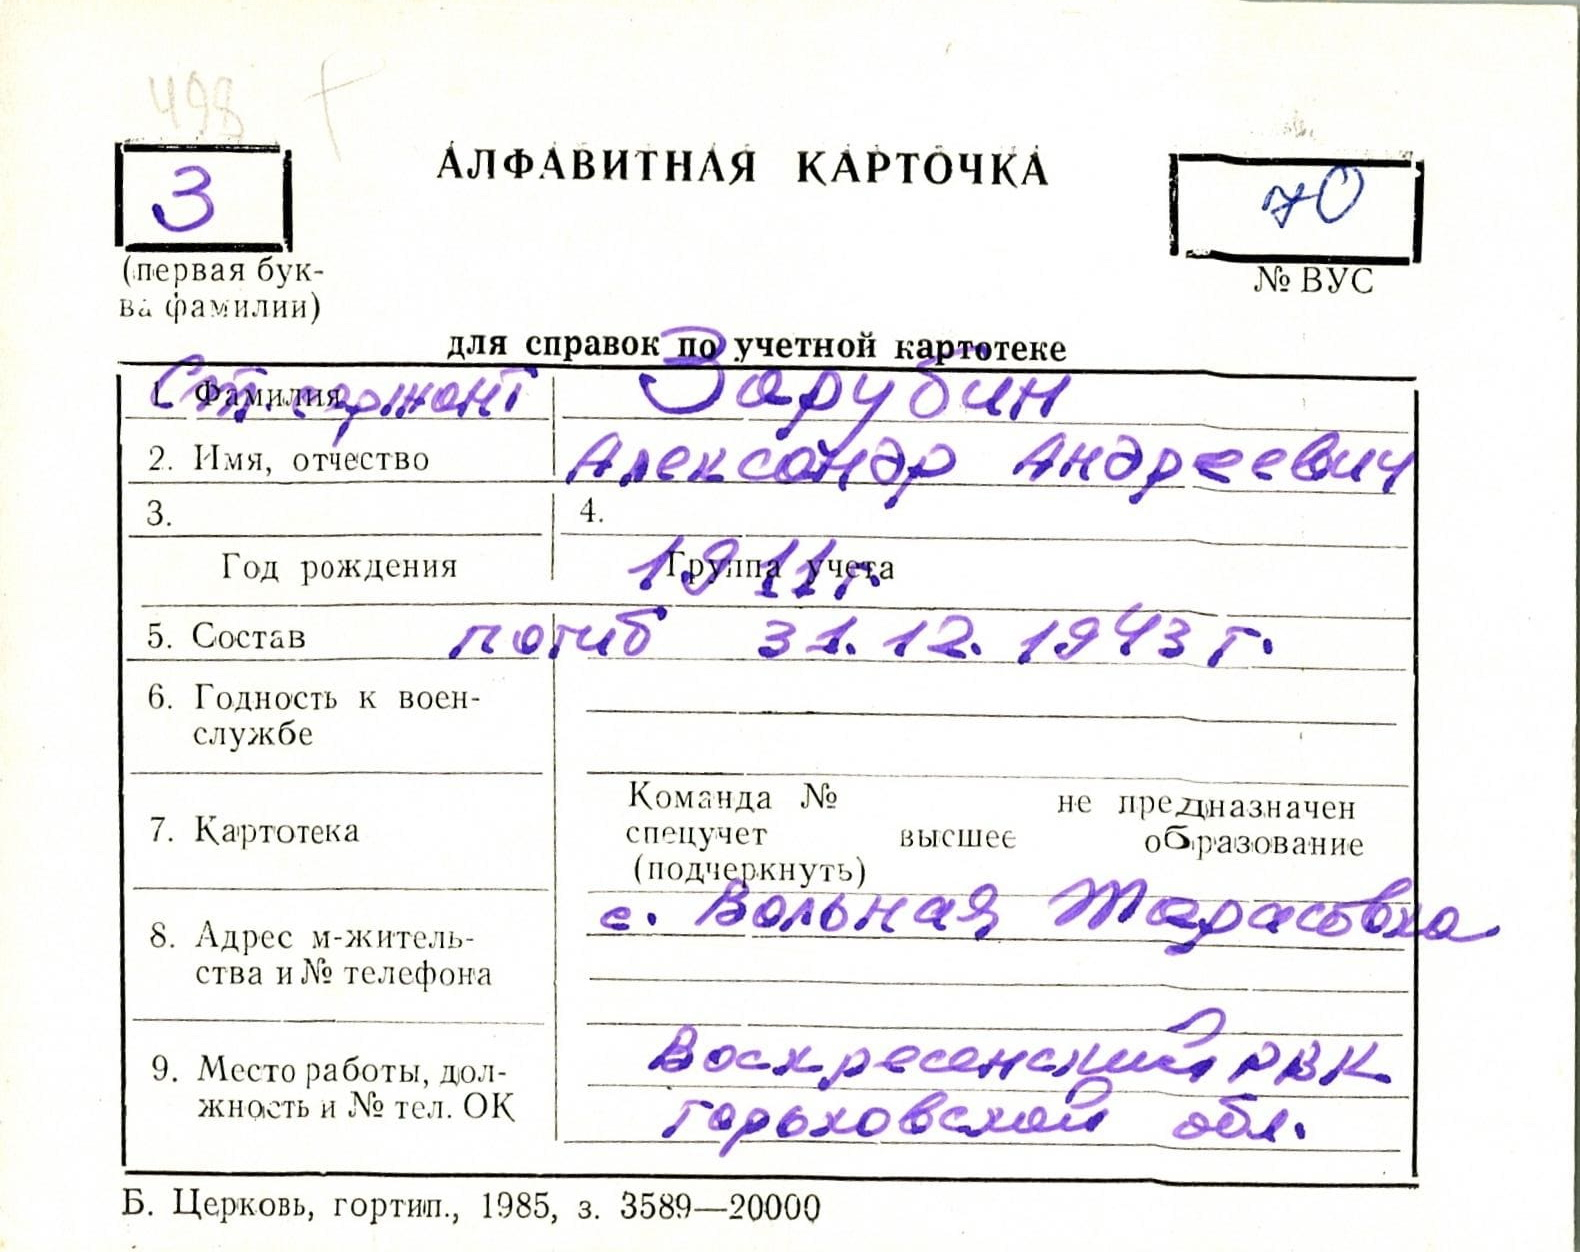 498 †
З
АЛФАВИТНАЯ КАРТОЧКА
70
(первая бук-
ва фамилии)
№ ВУС
для справок по учетной картотеке
1. Фамилия
Ст. сержант Зарубин
2. Имя, отчество Александр Андреевич
3. 4.
Год рождения Группа учета
1911 г.
5. Состав погиб 31.12.1943 г.
6. Годность к воен-
службе
7. Картотека
Команда № не предназначен
спецучет высшее образование
(подчеркнуть)
8. Адрес м-житель-
ства и № телефона
с. Вольная Тарасовка
9. Место работы, дол-
жность и № тел. ОК
Воскресенский РВК
Горьковской обл.
Б. Церковь, гортип., 1985, з. 3589—20000